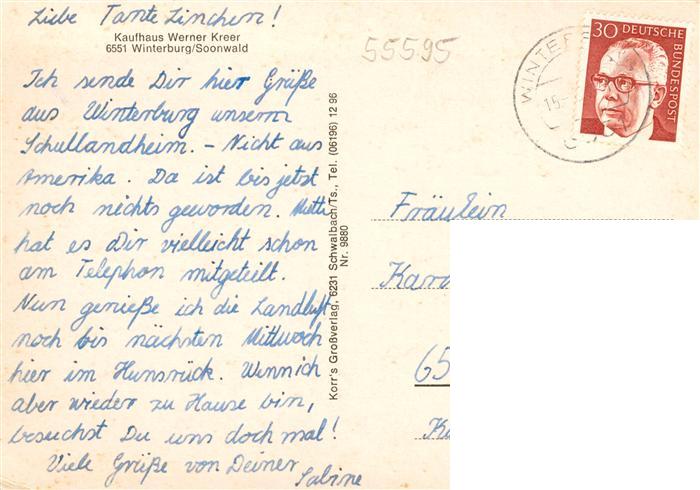 Liebe Tante Linchen!
Kaufhaus Werner Kreer
6551 Winterburg/Soonwald
Ich sende Dir hier Grüße
aus Winterburg unserm
Schullandheim. - Nicht aus
Amerika. Da ist bis jetzt
noch nichts geworden. Mutti
hat es Dir vielleicht schon
am Telephon mitgeteilt.
Nun genieße ich die Landluft
noch bis nächsten Mittwoch
hier im Hunsrück. Wenn ich
aber wieder zu Hause bin,
besuchst Du uns doch mal!
Viele Grüße von Deiner
Sabine
Korr's Großverlag, 6231 Schwalbach/Ts., Tel. (06196) 12 96
Nr. 9880
55595
30 DEUTSCHE
BUNDESPOST
WINTER
Fräulein
65